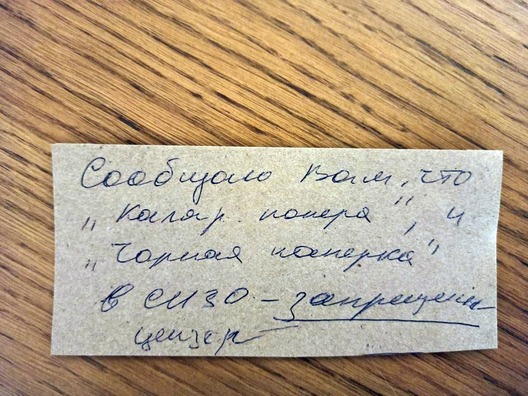 Сообщаю Вам, что
„Каляр. папера", и
„Чорная паперка"
в СИЗО – запрещены
цензор